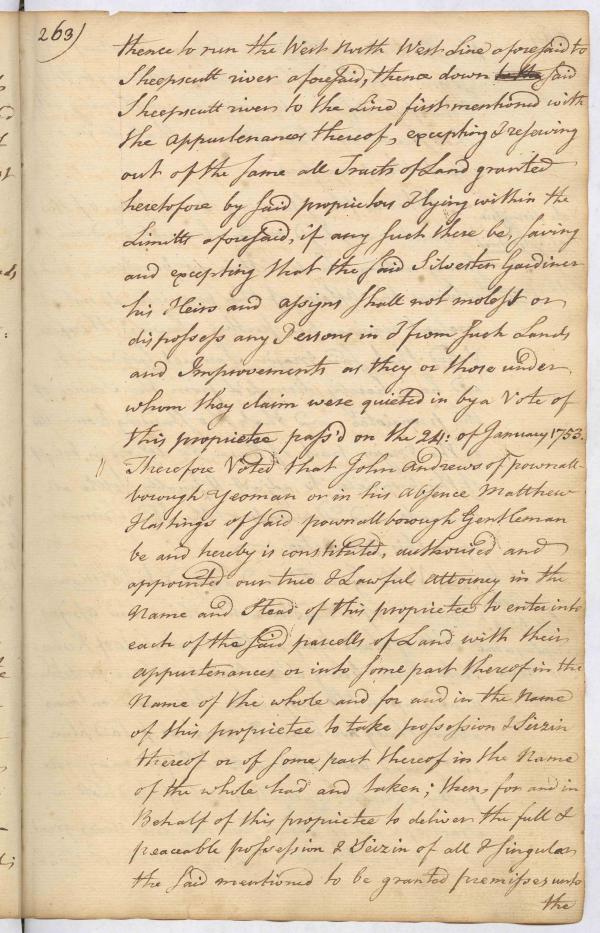 263)
thence to run the West North West Line aforesaid to
Sheepscutt river aforesaid, thence down said
Sheepscutt river to the Line first mentioned with
the appurtenances thereof, excepting & reserving
out of the same all Tracts of Land granted
heretofore by said proprietors & lying within the
Limitts aforesaid, if any such there be, saving
and excepting that the said Silvester Gardiner
his Heirs and assigns shall not molest or
dispossess any Persons in & from such Lands
and Improvements as they or those under
whom they claim were quieted in by a Vote of
this proprietee pass'd on the 24: of January 1753.
" Therefore Voted that John Andrews of pownall-
borough Yeoman or in his absence Matthew
Hastings of said pownallborough Gentleman
be and hereby is constituted, authorised and
appointed our true & Lawful attorney in the
Name and Stead of this proprietee to enter into
each of the said parcells of Land with their
appurtenances or into some part thereof in the
Name of the whole and for and in the Name
of this proprietee to take possession & Seizin
thereof or of some part thereof in the Name
of the whole had and taken; then, for and in
Behalf of this proprietee to deliver the full &
peaceable possession & Seizin of all & singular
the said mentioned to be granted premisses unto
the